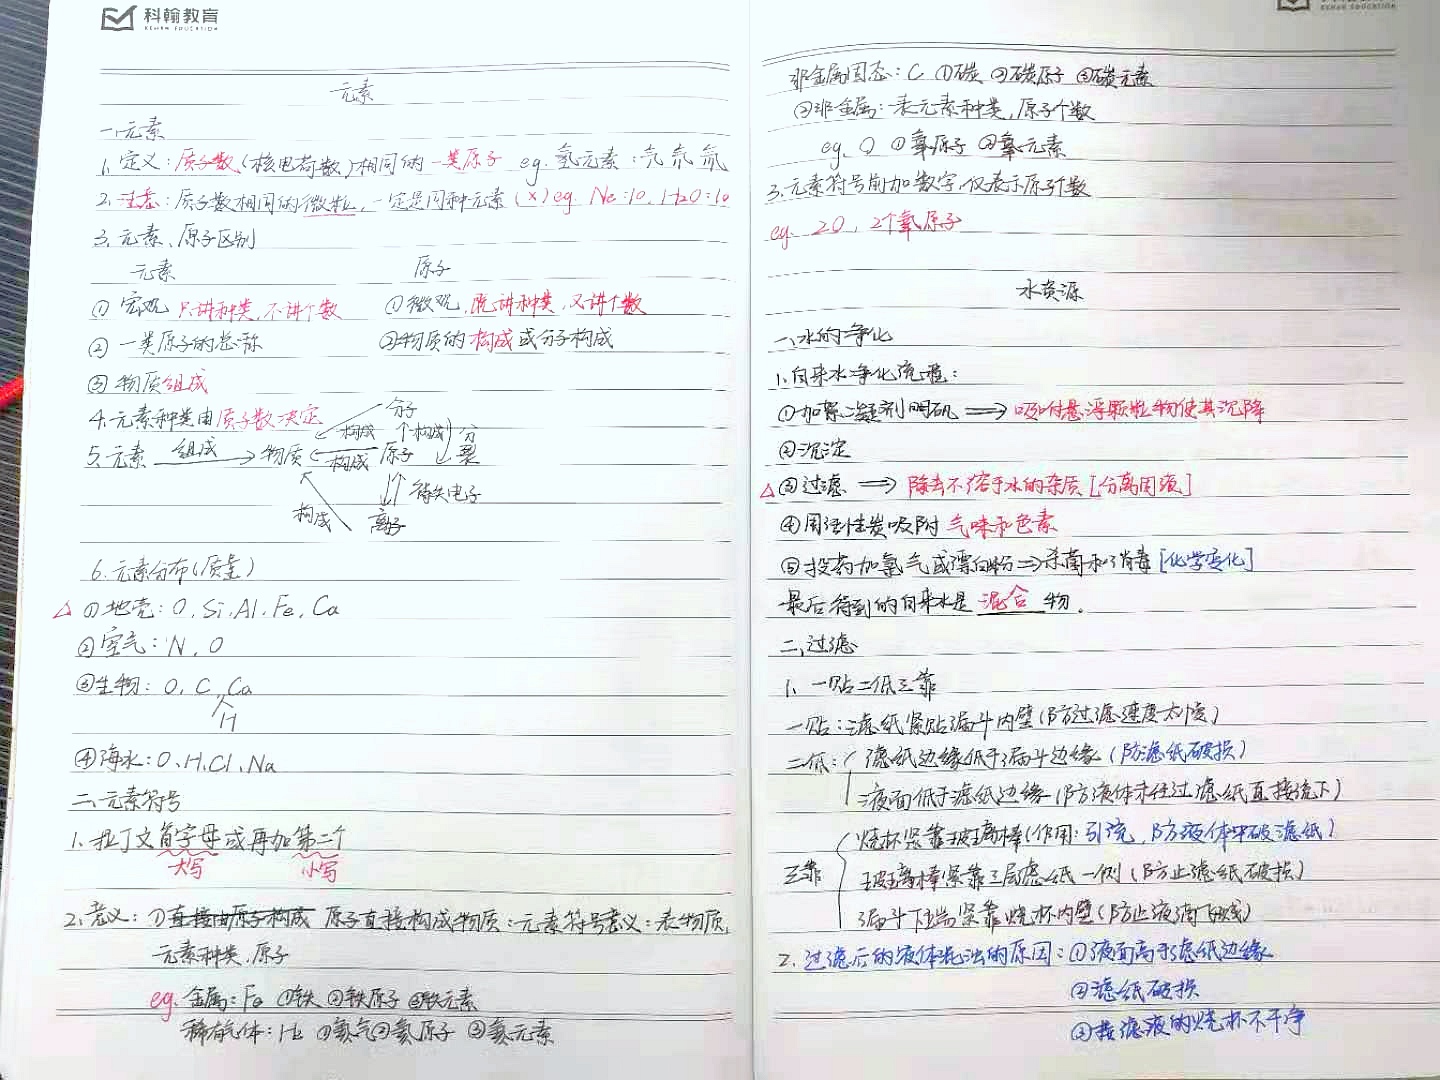 科翰教育
KEHAN EDUCATION
元素
一.元素
1.定义:质子数(核电荷数)相同的一类原子 eg.氢元素:氕氘氚
2.注意:质子数相同的微粒,一定是同种元素(×)eg. Ne:10, H2O:10
3.元素、原子区别
元素 原子
①宏观 只讲种类,不讲个数 ①微观,既讲种类,又讲个数
②一类原子的总称 ②物质的构成或分子构成
③物质组成
4.元素种类由质子数决定
分子
构成 个构成 分裂
5.元素 组成 物质 构成 原子
得失电子
构成 离子
6.元素分布(质量)
△ ①地壳:O, Si, Al, Fe, Ca
②空气:N, O
③生物:O, C, Ca
H
④海水:O, H, Cl, Na
二、元素符号
1.拉丁文首字母或再加第二个
大写 小写
2.意义:①直接由原子构成 原子直接构成物质:元素符号意义:表物质,
元素种类,原子
eg. 金属:Fe ①铁 ②铁原子 ③铁元素
稀有气体:He ①氦气②氦原子 ③氦元素
KEHAN EDUCATION
非金属固态:C ①碳 ②碳原子 ③碳元素
②非金属:表元素种类,原子个数
eg. O ①氧原子 ②氧元素
3.元素符号前加数字,仅表示原子个数
eg. 2O, 2个氧原子
水资源
一、水的净化
1.自来水净化流程:
①加絮凝剂明矾 ⟹ 吸附悬浮颗粒物使其沉降
②沉淀
△③过滤 ⟹ 除去不溶于水的杂质[分离固液]
④用活性炭吸附 气味和色素
⑤投药加氯气或漂白粉⟹杀菌和消毒[化学变化]
最后得到的自来水是 混合 物.
二、过滤
1.一贴二低三靠
一贴:滤纸紧贴漏斗内壁(防过滤速度太慢)
二低:滤纸边缘低于漏斗边缘(防滤纸破损)
液面低于滤纸边缘(防液体未经过滤纸直接流下)
烧杯紧靠玻璃棒(作用:引流,防液体冲破滤纸)
三靠 玻璃棒紧靠三层滤纸一侧(防止滤纸破损)
漏斗下端紧靠烧杯内壁(防止液滴飞溅)
2.过滤后的液体浑浊的原因:①液面高于滤纸边缘
②滤纸破损
③接滤液的烧杯不干净